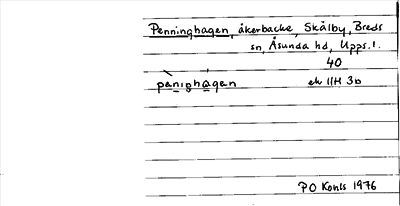 Penninghagen, åkerbacke, Skälby, Breds
sn, Åsunda hd, Upps.l.
40
pànighágen ek 11H 3b
PO Konls 1976